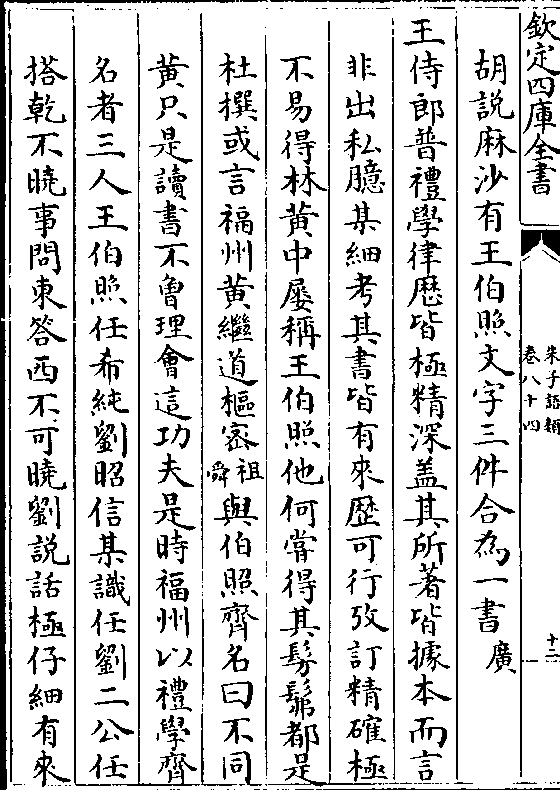 欽定四庫全書
朱子語類
卷八十四
十二
胡說麻沙有王伯照文字三件合為一書廣
王侍郎普禮學律厯皆極精深盖其所著皆據本而言
非出私臆某細考其書皆有來歴可行攷訂精確極
不易得林黄中屢稱王伯照他何嘗得其髣髴都是
杜撰或言福州黄繼道樞密祖舜與伯照齊名曰不同
黄只是讀書不曾理會這功夫是時福州以禮學齊
名者三人王伯照任希純劉昭信某識任劉二公任
搭乾不曉事問東答西不可曉劉説話極仔細有來